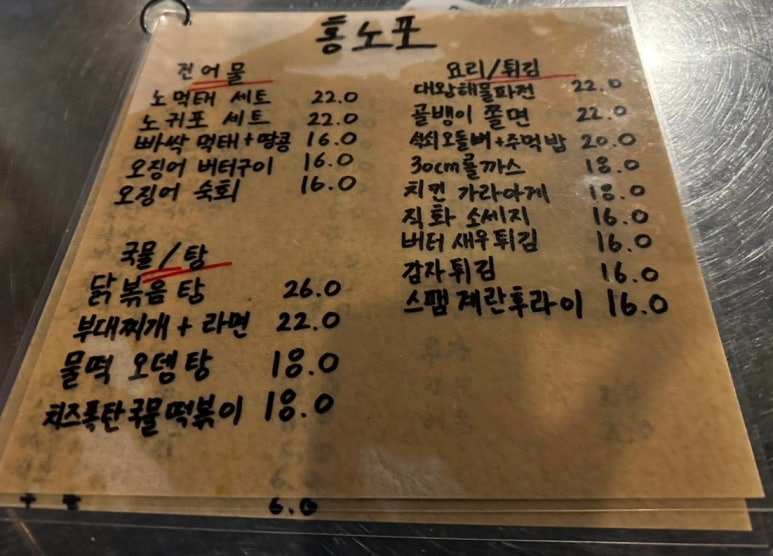 홍노포
건어물
노먹태 세트 22.0
노귀포 세트 22.0
빠싹 먹태+땅콩 16.0
오징어 버터구이 16.0
오징어 숙회 16.0
국물/탕
닭볶음탕 26.0
부대찌개 + 라면 22.0
물떡 오뎅탕 18.0
치즈폭탄국물떡볶이 18.0
요리/튀김
대왕해물파전 22.0
골뱅이 쫄면 22.0
석쇠오돌뼈+주먹밥 20.0
30cm롤까스 18.0
치킨 가라아게 18.0
직화 소세지 16.0
버터 새우튀김 16.0
감자튀김 16.0
스팸계란후라이 16.0
6.0